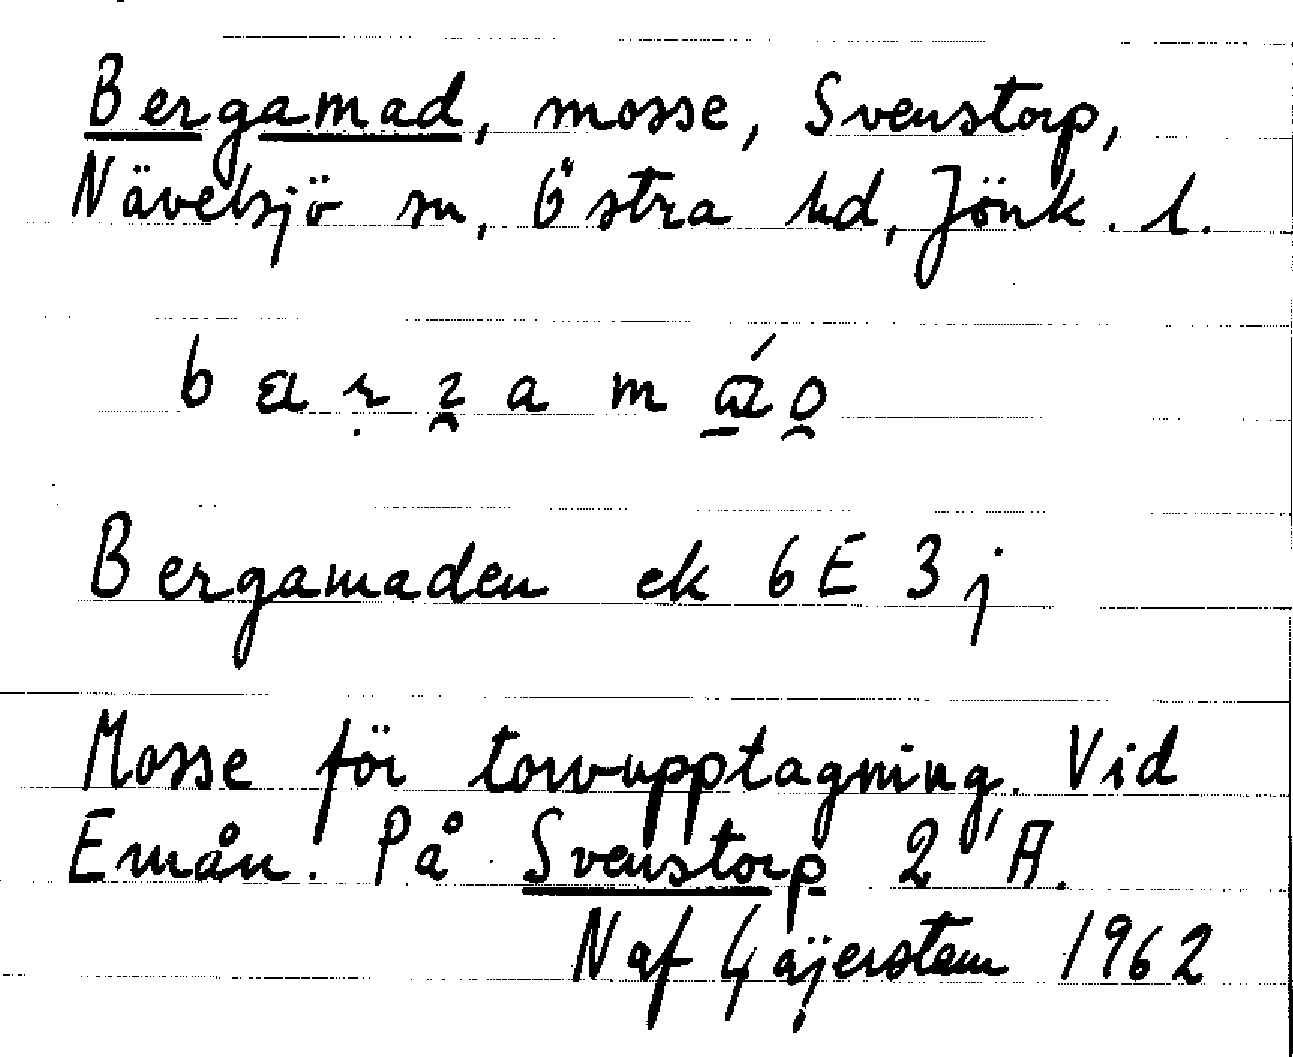 Bergamad, mosse, Svenstorp,
Nävelsjö sn, Östra hd, Jönk. l.
Bergamaden ek 6E 3j
Mosse för torvupptagning. Vid
Emån. På Svenstorp 2 A.
N af Gäjerstam 1962